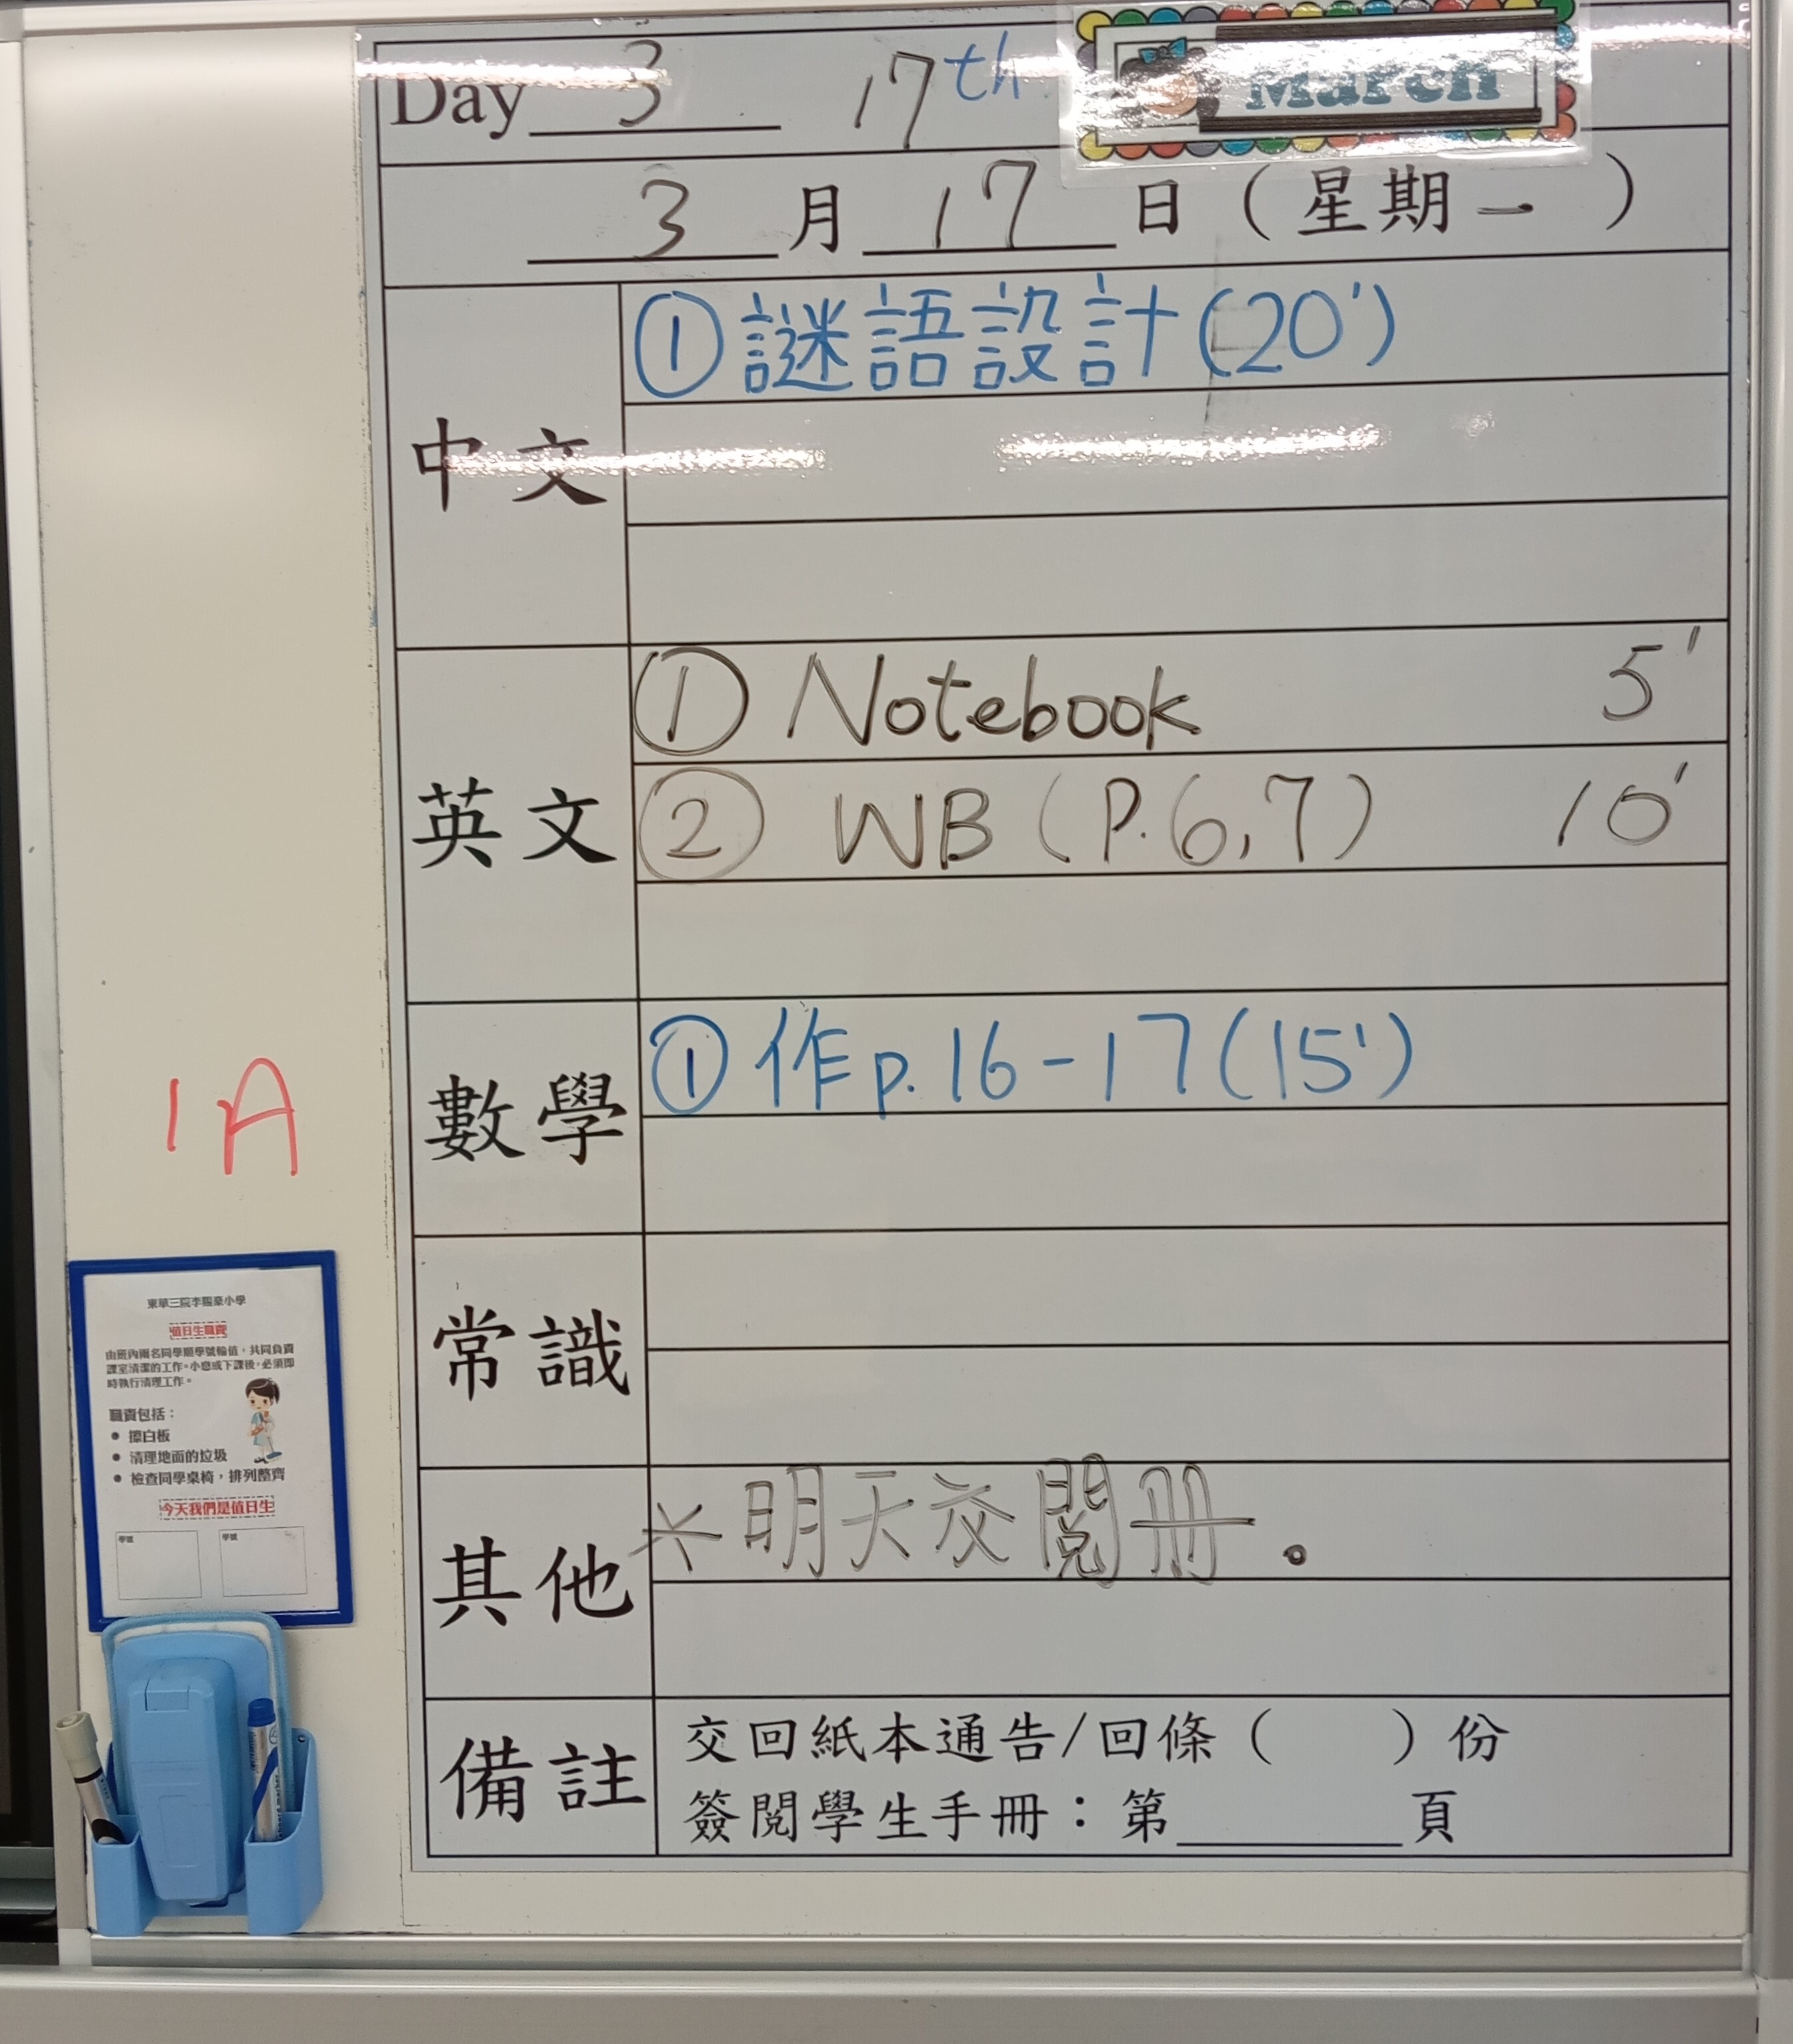 Day 3 17th March
3 月 17 日 ( 星期一 )
中文
① 謎語設計 (20')
英文
① Notebook 5'
② WB (P.6,7) 10'
數學
① 作 p.16-17 (15')
常識
其他
* 明天交閱冊。
備註
交回紙本通告/回條 ( ) 份
簽閱學生手冊：第______頁
1A
東華三院李賜豪小學
值日生職責
由班內兩名同學順學號輪值，共同負責
課室清潔的工作。小息或下課後，必須即
時執行清理工作。
職責包括：
• 擦白板
• 清理地面的垃圾
• 檢查同學桌椅，排列整齊
今天我們是值日生
學號 學號